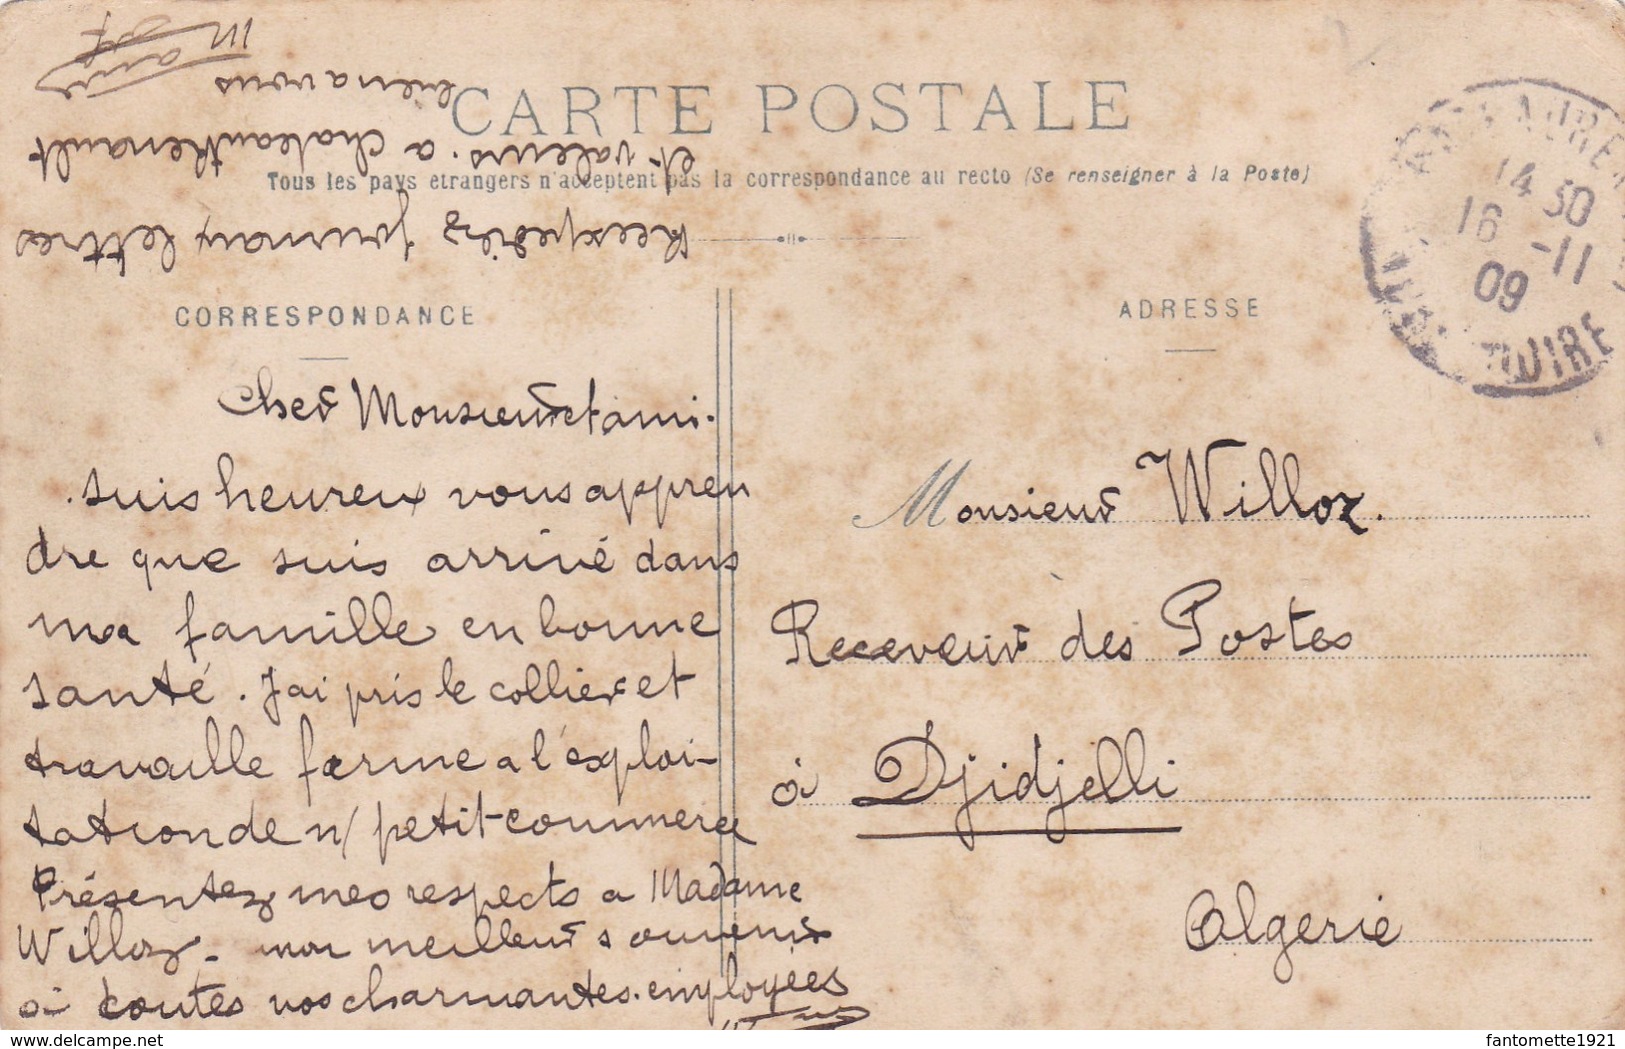 CARTE POSTALE
Tous les pays etrangers n'acceptent pas la correspondance au recto (Se renseigner à la Poste)
CORRESPONDANCE
Cher Monsieur et ami.
suis heureux vous appren
dre que suis arrivé dans
ma famille en bonne
santé. J'ai pris le collier et
travaille ferme a l'exploi-
tation de n/ petit commerce
Présentez mes respects a Madame
Willoz - mon meilleur souvenir
à toutes vos charmantes employées
Reexpediez journaux lettres
et valeurs. a chateauRenault
bien a vous
ADRESSE
Monsieur Willoz.
Receveur des Postes
à Djidjelli
Algerie
14 30
16 -11
09
delcampe.net
fantomette1921